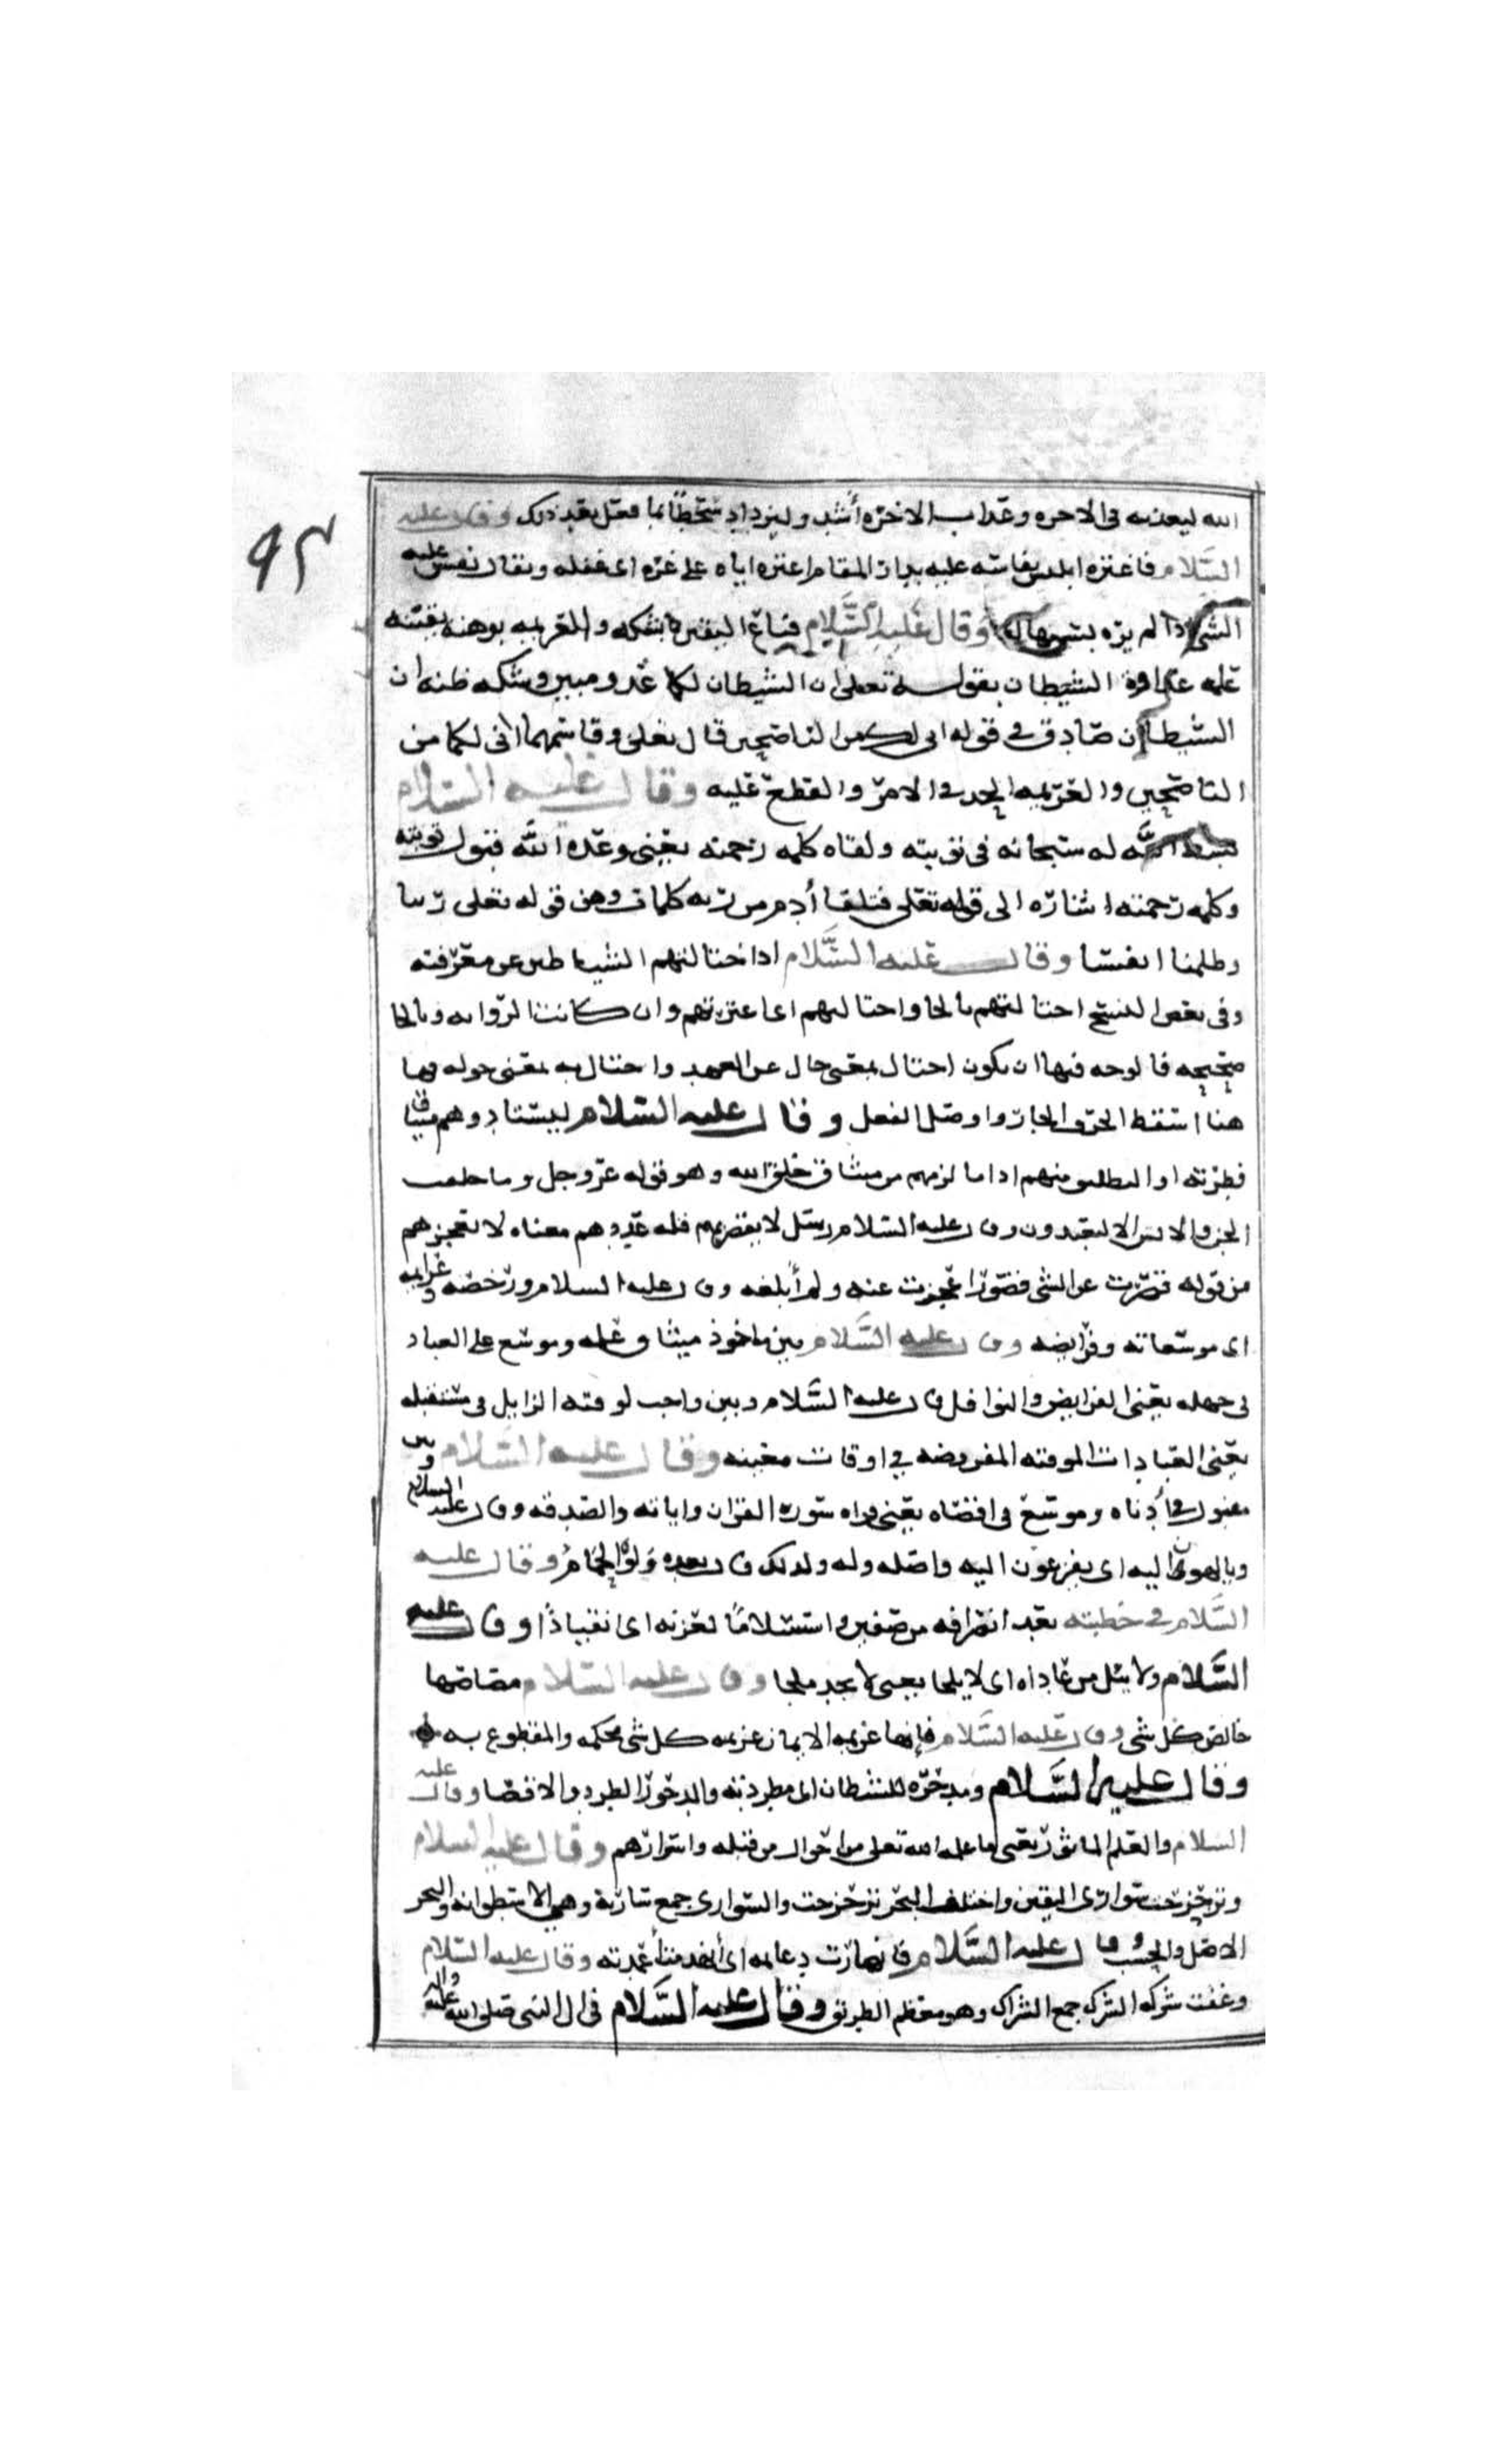 ٩٢
الله ليعذبه في الاخره وعذاب الاخره أشد وليزداد سخطًا بما فعل بعد ذلك وقال عليه
السَّلام فاغتره ابليس نفاسه عليه بدار المقام اغتره اياه على غره اى غفله ويقال نفس عليه
الشي اذا لم يره يستهاله وقال عليه السَّلام فباع اليقين بشكه والعزيمه بوهنه يقينه
علمه عداوة الشيطان بقوله تعلى ان الشيطان لكما عدو مبين وشكه ظنه ان
الشيطان صادق في قوله انى لكما من الناصحين قال تعلى وقاسمهما انى لكما من
الناصحين والعزيمه الجد في الامر والقطع عليه وقال عليه السلام
بسط الله له سبحانه في توبته ولقاه كلمه رحمته يعنى وعده الله قبول توبته
وكلمه رحمته اشاره الى قوله تعلى فتلقا أدم من ربه كلمات وهن قوله تعلى ربنا
وظلمنا انفسنا وقال عليه السَّلام اذا ختالتهم الشياطين عن معرفته
وفى بعض النسخ احتالتهم بالحا واحتالهم اى اعترتهم وان كانت الروايه وبالحا
صحيحه فالوجه فيها ان يكون احتال بمعنى حال عن العهد واحتال به بمعنى حوله وها
هنا اسقط الحرف الجار واوصل الفعل وقال عليه السلام ليستادوهم ميثاق
فطرته او اليطلبو منهم اداما لزمهم من ميثاق خلق الله وهو قوله عز وجل وما خلقت
الجن والانس الا ليعبدون وقال عليه السلام رسل لا يقصر بهم قله عددهم معناه لا تعجزهم
من قوله قصرت عن الشى قصورًا عجزت عنه ولم أبلغه وقال عليه السلام ورخصه وعزايمه
اى موسعاته وفرايضه وقال عليه السَّلام بين ماخوذ ميثاق علمه وموسع على العباد
فى جهله يعنى الفرايض والنوافل قال عليه السَّلام وبين واجب لوقته الزايل فى مستقبله
يعنى العبادات الموقته المفروضه في اوقات معينه وقال عليه السَّلام وبين
مقبول في أدناه وموسع فى اقصاه يعنى قراه سورة القران واياته والصدقه وقال عليه السلام
ويالهون اليه اى يفزعون اليه واصله وله ولذلك قال بعده ولوه الحمام وقال عليه
السَّلام في خطبته بعد انصرافه من صفين واستسلامًا لعزته اى انقيادًا وقال عليه
السَّلام ولا يئل من عاداه اى لا يلجا يعنى لا يجد ملجا وقال عليه السلام مصاصها
خالص كل شى وقال عليه السَّلام فإنها عزيمه الايمان عزيمه كل شى محكمه والمقطوع به
وقال عليه السَّلام ومدحره للشيطان اى مطردته والدحور الطرد والاقصا وقال عليه
السلام والعلم الماثور يعنى ما علمه الله تعلى من احوال من قبله واسرارهم وقال عليه السلام
وتزحزحت سوارى اليقين واختلف البحر تزحزحت والسوارى جمع سارية وهي الاسطوانه والبحر
الاصل والحسب وقال عليه السَّلام فانهارت دعايمه اى انهدمت أعمدته وقال عليه السلام
وعفت شركه الشرك جمع الشراك وهو معظم الطريق وقال عليه السَّلام فى ال النبى صلى الله عليه واله